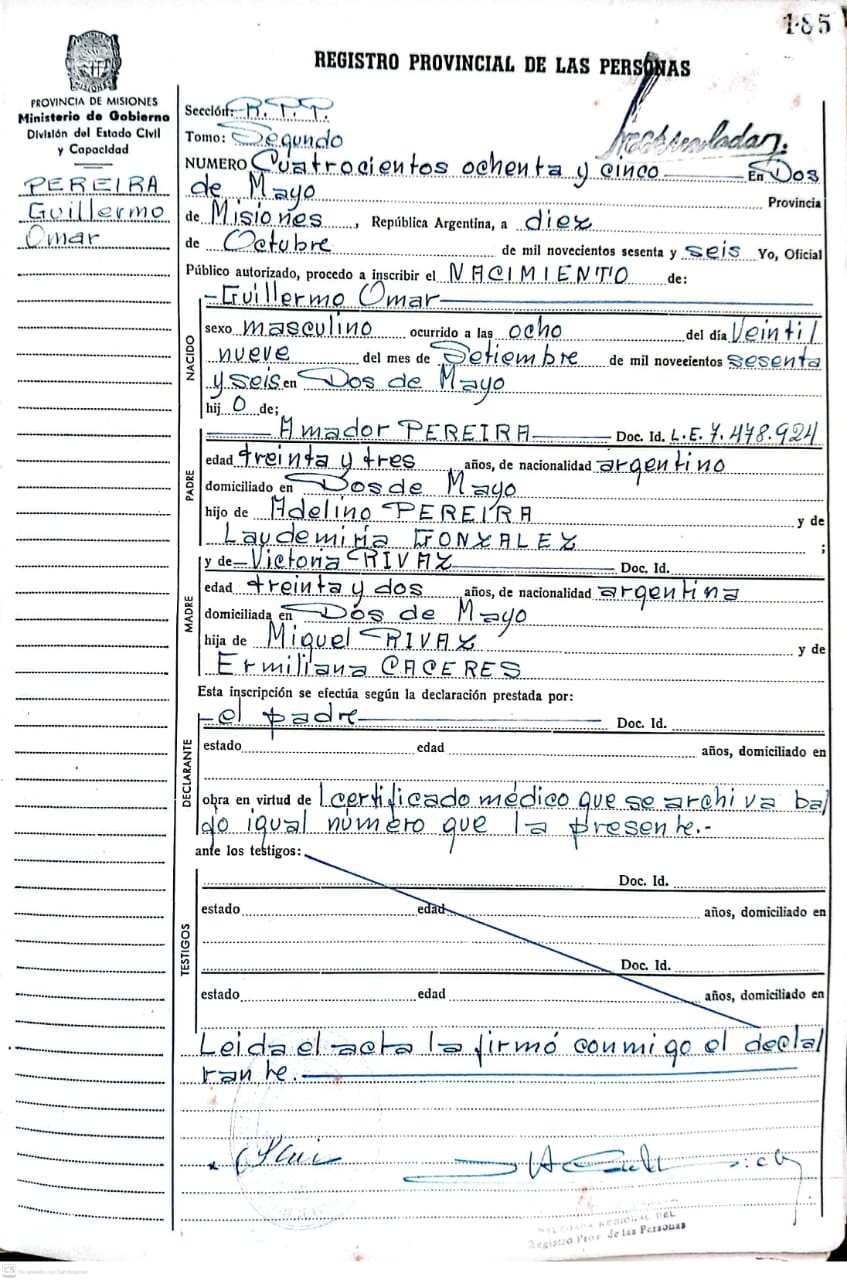 185
REGISTRO PROVINCIAL DE LAS PERSONAS
PROVINCIA DE MISIONES
Ministerio de Gobierno
División del Estado Civil
y Capacidad
PEREIRA
Guillermo
Omar
Sección: R.P.P.
Tomo: Segundo
NUMERO Cuatrocientos ochenta y cinco En Dos
de Mayo Provincia
de Misiones, República Argentina, a diez
de Octubre de mil novecientos sesenta y seis Yo, Oficial
Público autorizado, procedo a inscribir el NACIMIENTO de:
NACIDO
-Guillermo Omar
sexo masculino ocurrido a las ocho del día Veinti
nueve del mes de Setiembre de mil novecientos sesenta
y seis en Dos de Mayo
hij o de;
PADRE
Amador PEREIRA Doc. Id. L.E. 7.478.924
edad treinta y tres años, de nacionalidad argentino
domiciliado en Dos de Mayo
hijo de Adelino PEREIRA y de
Laudemiria GONZALEZ ;
MADRE
y de Victoria RIVAZ Doc. Id.
edad treinta y dos años, de nacionalidad argentina
domiciliada en Dos de Mayo
hija de Miguel RIVAZ y de
Ermiliana CACERES
Esta inscripción se efectúa según la declaración prestada por:
DECLARANTE
-el padre Doc. Id.
estado edad años, domiciliado en
obra en virtud de certificado médico que se archiva ba
jo igual número que la presente.-
ante los testigos:
TESTIGOS
Doc. Id.
estado edad años, domiciliado en
Doc. Id.
estado edad años, domiciliado en
Leida el acta la firmó conmigo el decla
rante.
REGIONAL DEL
Registro Prov. de las Personas
CS